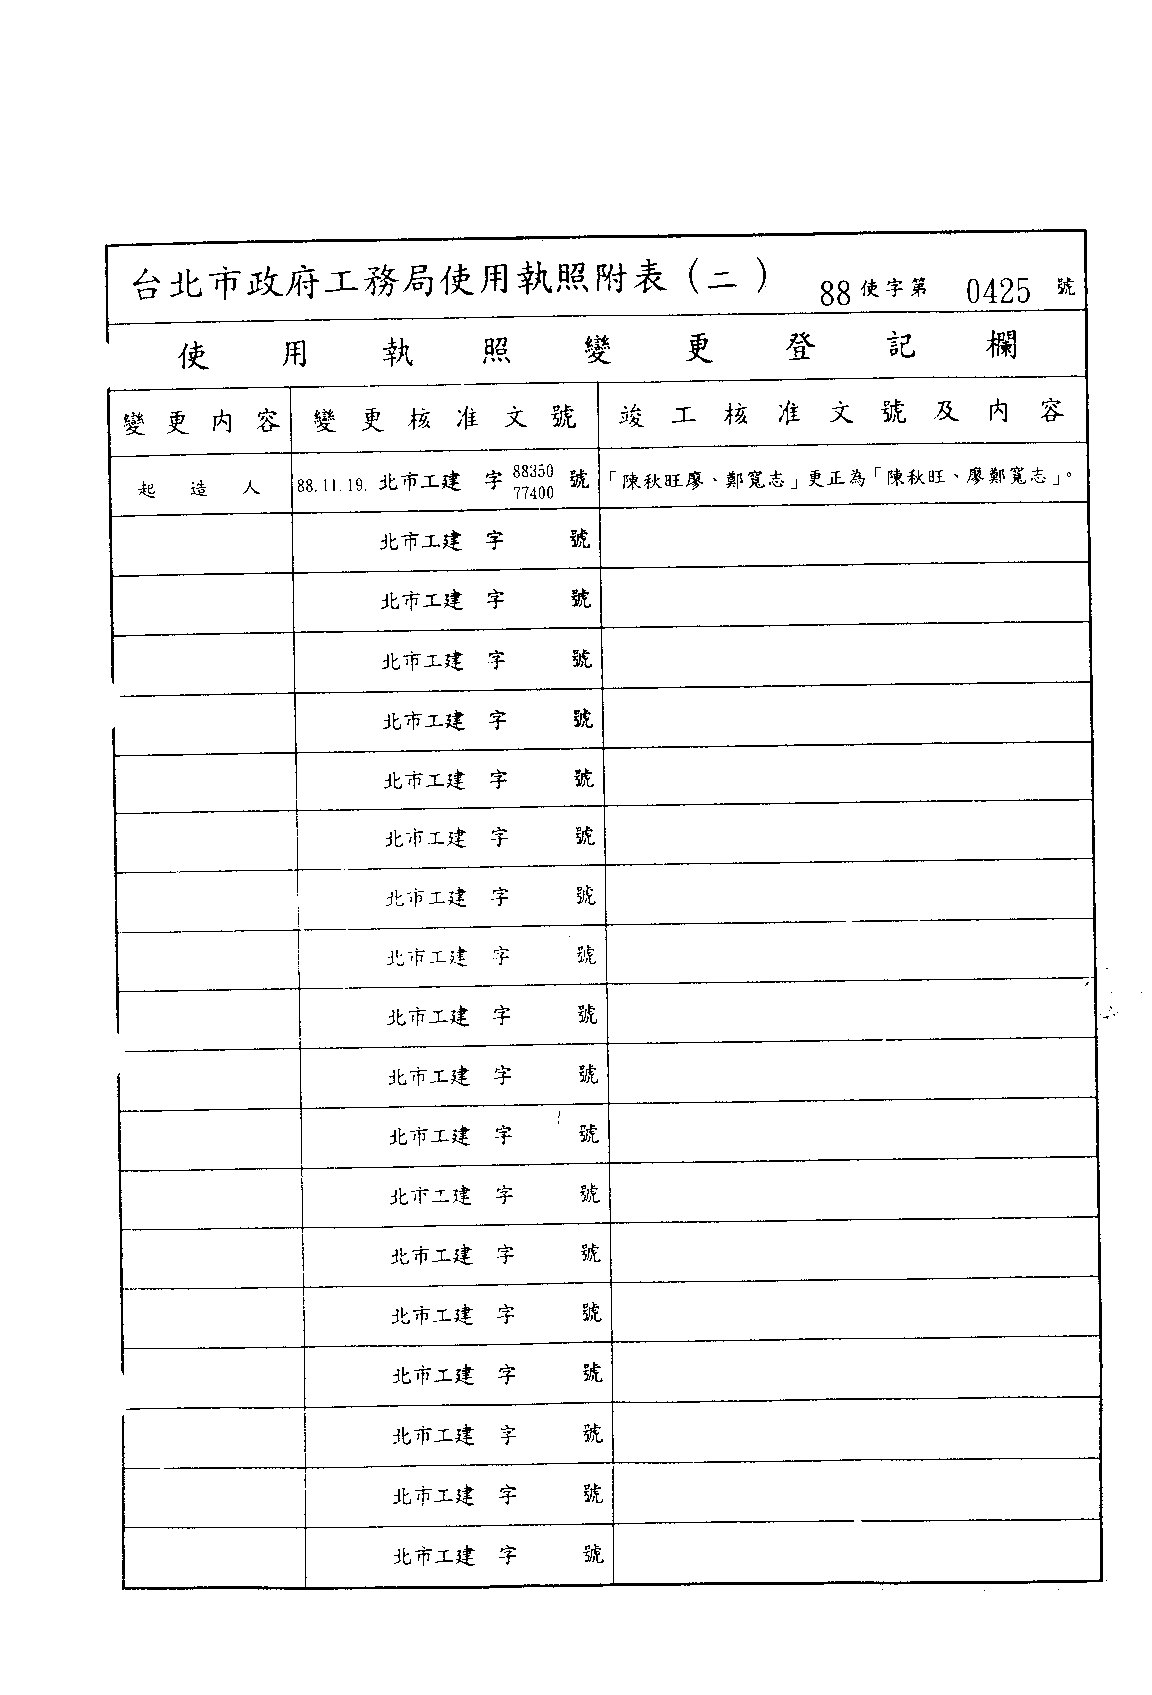 台北市政府工務局使用執照附表(二) 88使字第 0425 號
使用執照變更登記欄
變更內容 變更核准文號 竣工核准文號及內容
起造人 88.11.19. 北市工建 字 8835077400 號 「陳秋旺廖、鄭寬志」更正為「陳秋旺、廖鄭寬志」。
北市工建 字 號
北市工建 字 號
北市工建 字 號
北市工建 字 號
北市工建 字 號
北市工建 字 號
北市工建 字 號
北市工建 字 號
北市工建 字 號
北市工建 字 號
北市工建 字 號
北市工建 字 號
北市工建 字 號
北市工建 字 號
北市工建 字 號
北市工建 字 號
北市工建 字 號
北市工建 字 號